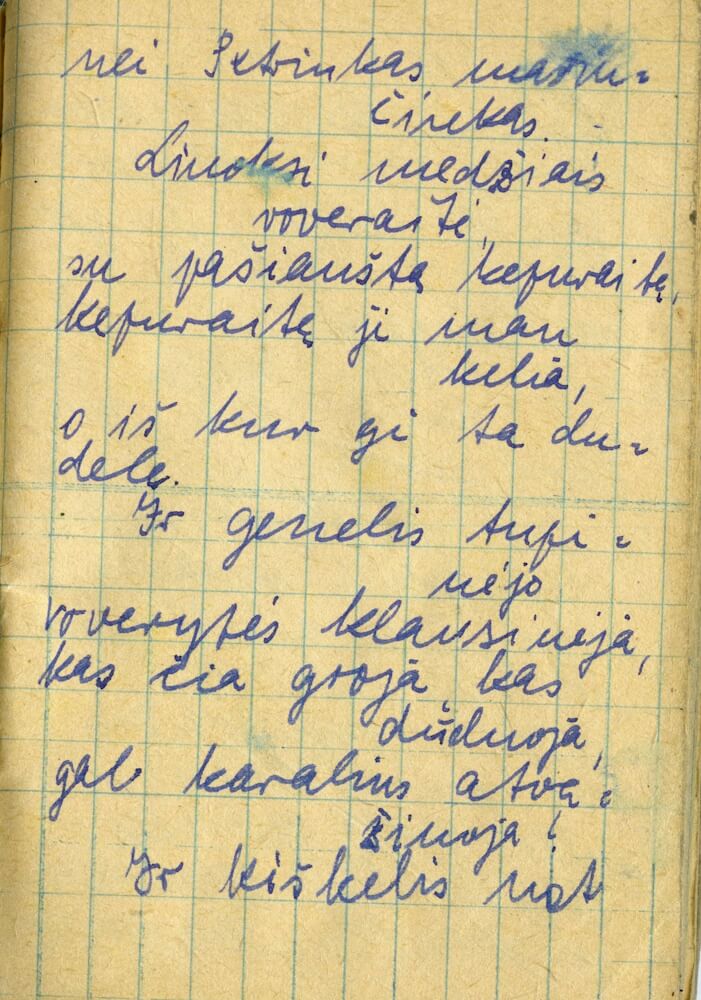 nei Petriukas mažiu-
čiukas.
Linoksi medžiais
voveraitė,
su pašiauštą kepuraitę,
kepuraitę ji man
kelia,
o iš kur gi ta du-
delę.
Ir genelis tupi-
nėjo
voverytės klausinėja,
kas čia groja kas
dūduoja,
gal karalius atva-
žiuoja?
Ir kiškelis not